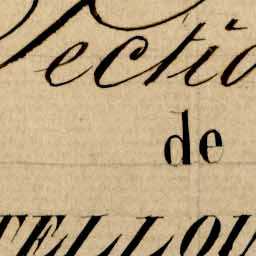 Sectio
de
TELLOU